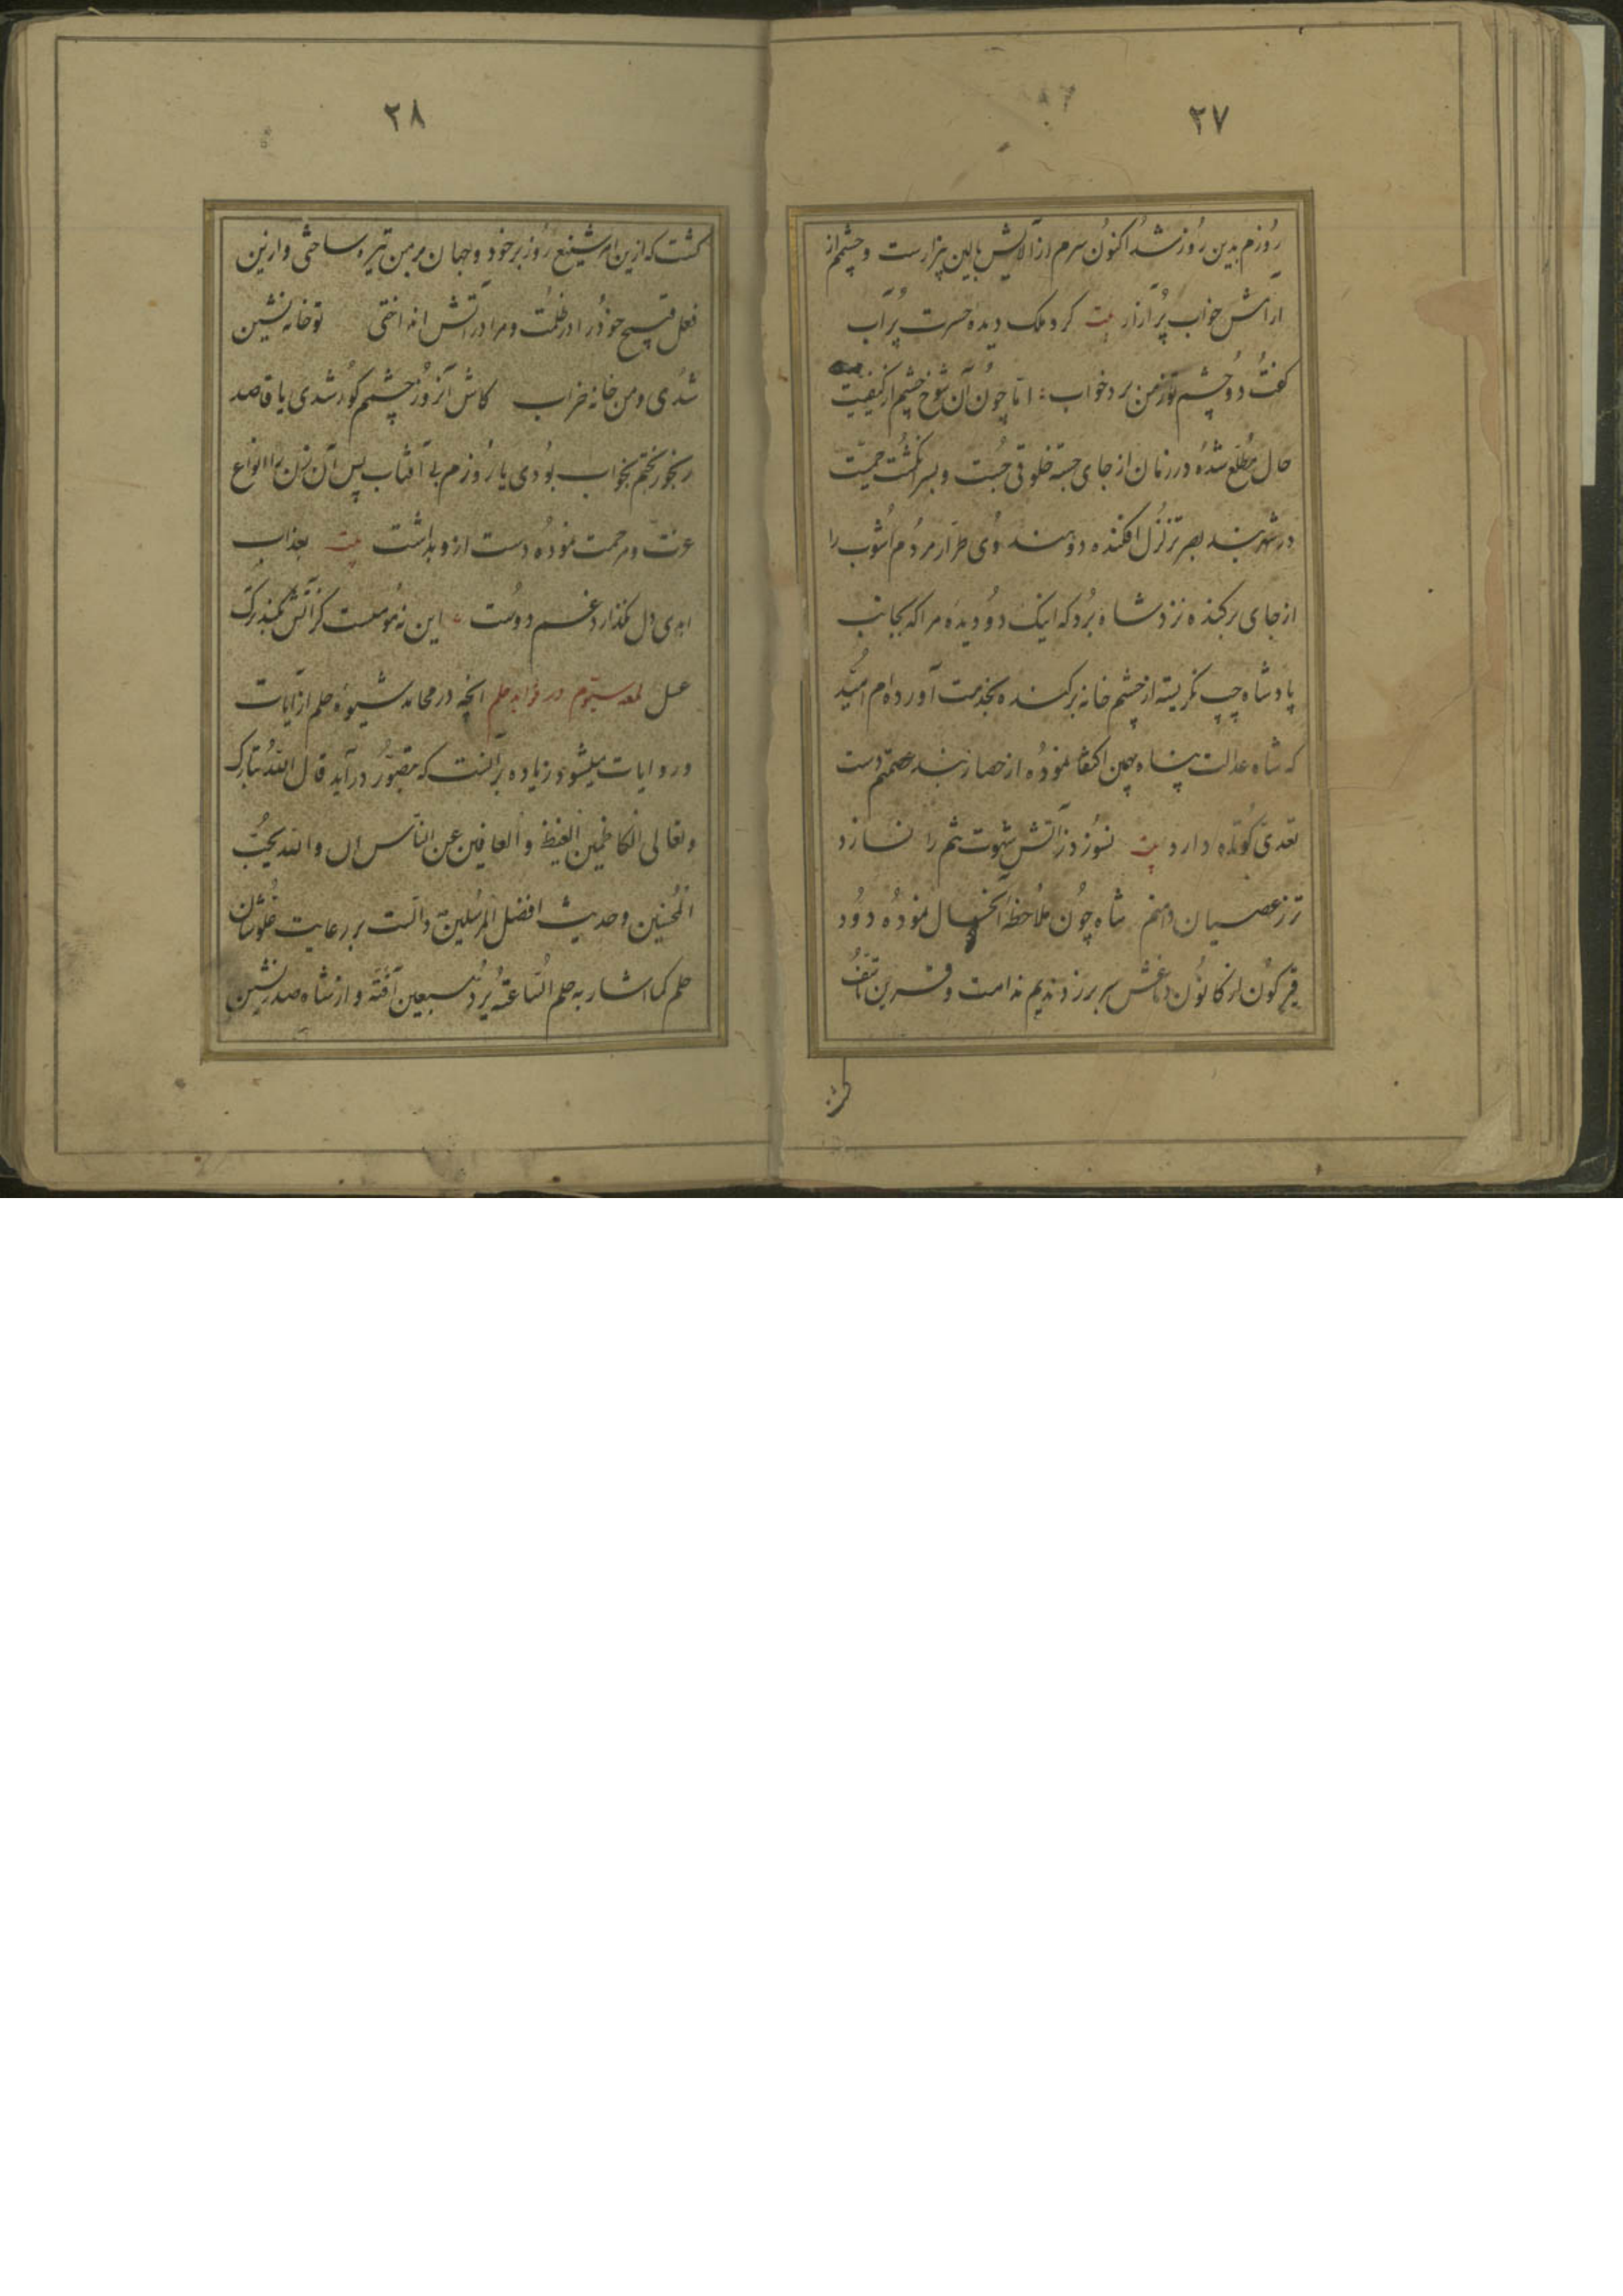 ۲۷
روزم بدین روز شد اکنون سرم از آلایش بالین بیزارست و چشمم از
آرامش خواب پر آزار بیت کرد ملک دیده حسرت پر آب
گفت دو چشم تو ز من برد خواب اما چون آن شوخ چشم از کیفیت
حال مطلع شده در زمان از جای جسته خلوتی جست و بسر انگشت حمیت
در شهر بند بصر تزلزل افکنده دو هندوی طرار مردم آشوب را
از جای برکنده نزد شاه برد که اینک دو دیده مرا که بجانب
پادشاه چپ نگریسته از چشم خانه برکنده بخدمت آورده‌ام امید
که شاه عدالت پناه بهمین اکتفا نموده از حصار بند عصمتم دست
تعدی کوتاه دارد بیت نسوزد ز آتش شهوت تنم را نسازد
تر ز عصیان دامنم شاه چون ملاحظه آنحال نموده دود
قیرگون از کانون دماغش سر بر زد ندیم ندامت و قرین تأسف
۲۸
گشت که ازین امر شنیع روز بر خود و جهان بر من تیره ساختی و ازین
فعل قبیح خود را در ظلمت و مرا در آتش انداختی تو خانه نشین
شدی و من خانه خراب کاش آنروز چشمم کور شدی یا قاصد
رنجور بختم بخواب بودی یا روزم بی آفتاب پس آن زن را انواع
عزت و مرحمت نموده دست ازو بداشت بیت بعذاب
ابدی دل نگذارد غم دوست این نه مومست کز آتش بگذرد
عسل لمعه سیوم در فواید حلم آنچه در محامد شیوه حلم از آیات
و روایات میشود زیاده برآنست که متصور درآید قال الله تبارک
وتعالی الکاظمین الغیظ والعافین عن الناس والله یحب
المحسنین و حدیث افضل المرسلین دالست بر رعایت
حلم کما اشار به حلم الساعة یرد سبعین آفة و از شاه صدر نشین